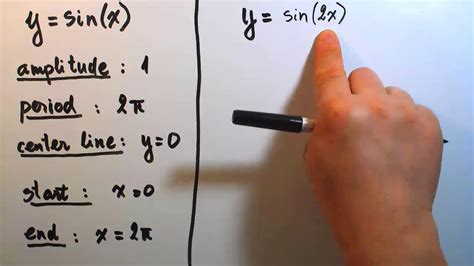 y = sin(x)
amplitude : 1
period : 2π
center line : y=0
start : x=0
end : x = 2π
y = sin(2x)